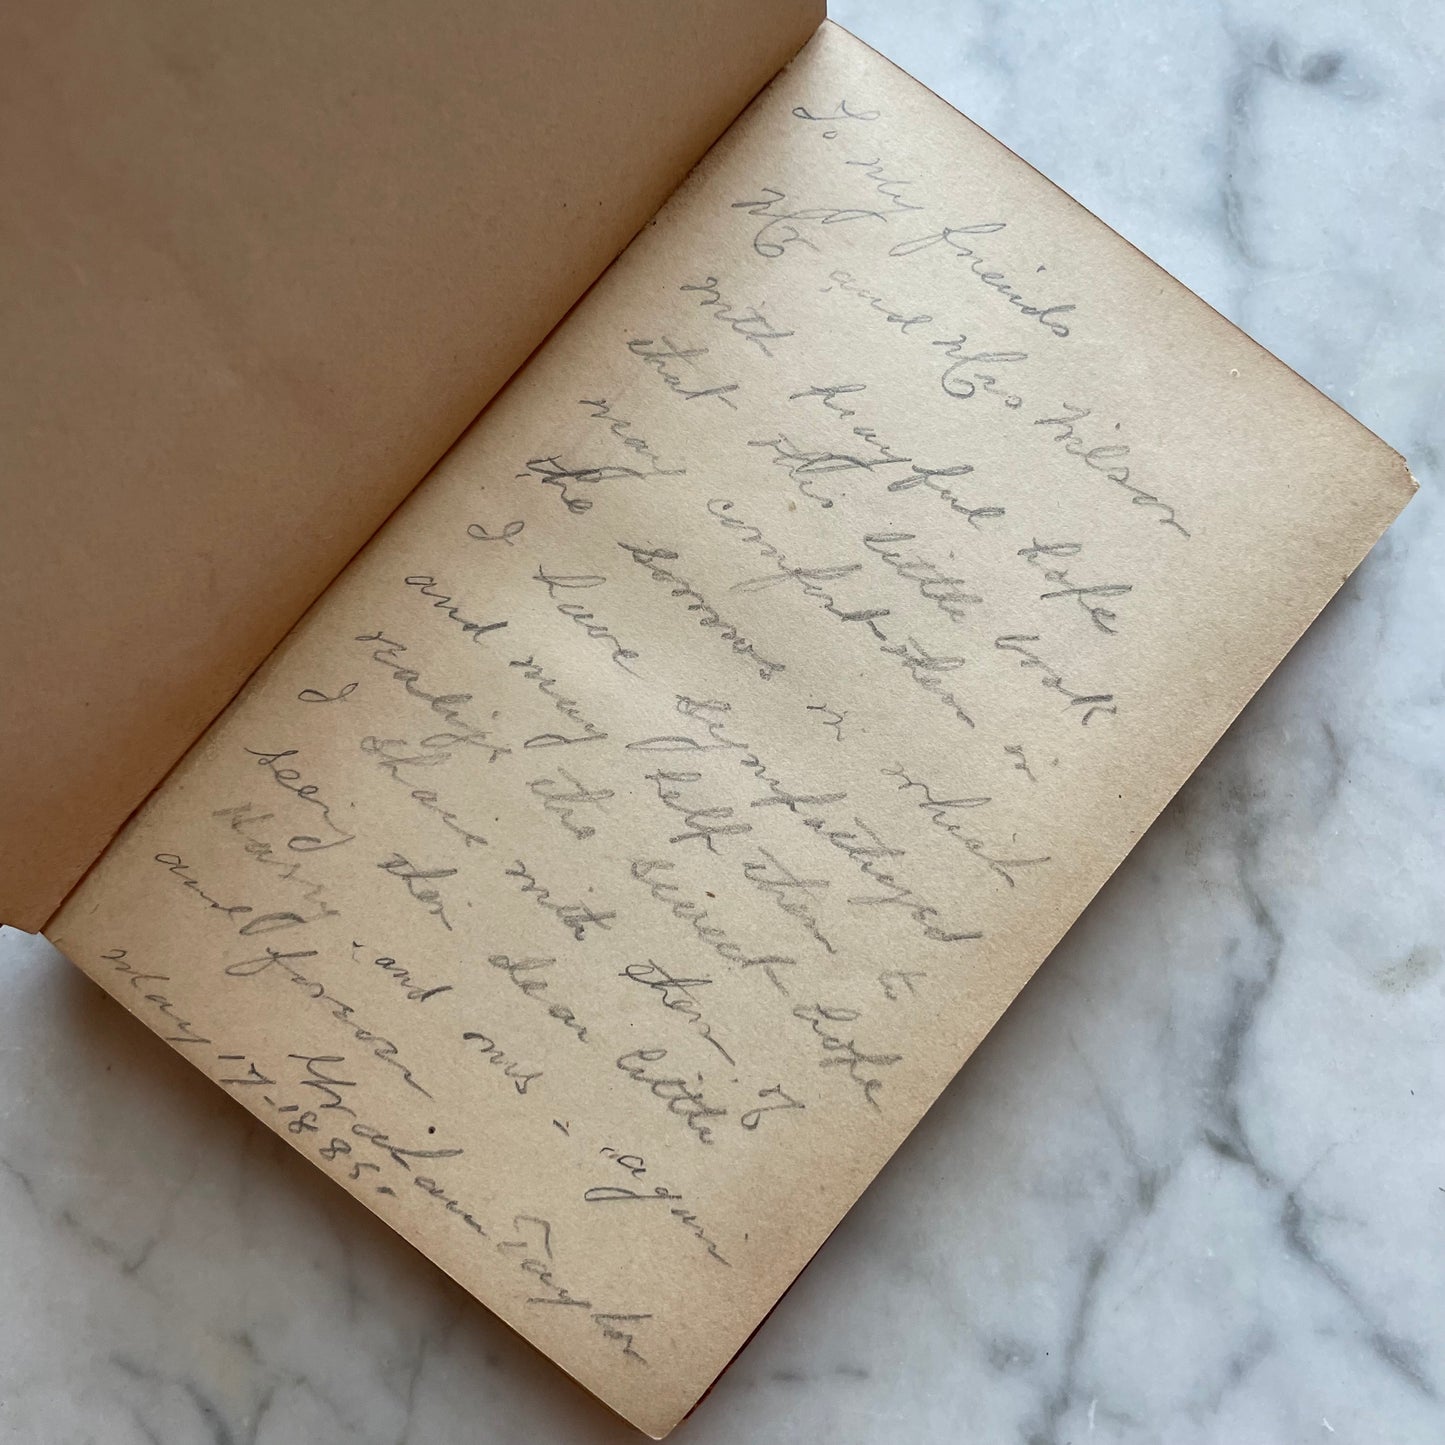 To My friends
Mr and Mrs Wilson
with prayerful hope
that this little book
may comfort them in
the sorrows in which
I have sympathized
and may help them to
realize the sweet hope
I share with them of
seeing their dear little
Harry - and ours - again
and forever
Graham Taylor
May 17-1885.